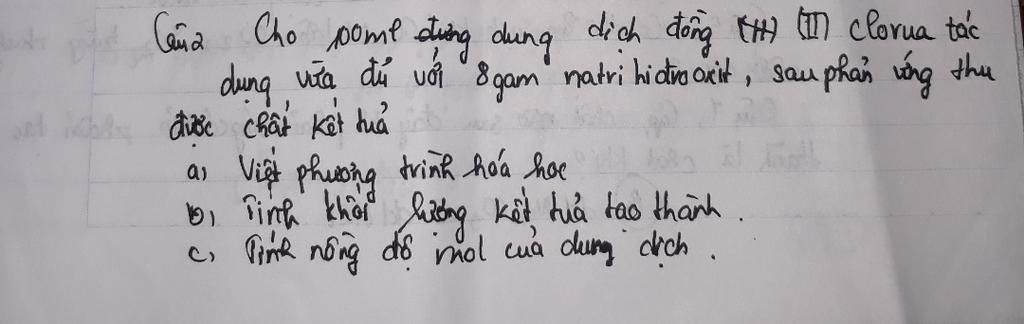 Câu 2 Cho 100ml dung dịch đồng (II) Clorua tác
dụng vừa đủ với 8gam natri hidroxit, sau phản ứng thu
được chất kết tủa
a) Viết phương trình hóa học
b) Tính khối lượng kết tủa tạo thành.
c) Tính nồng độ mol của dung dịch.